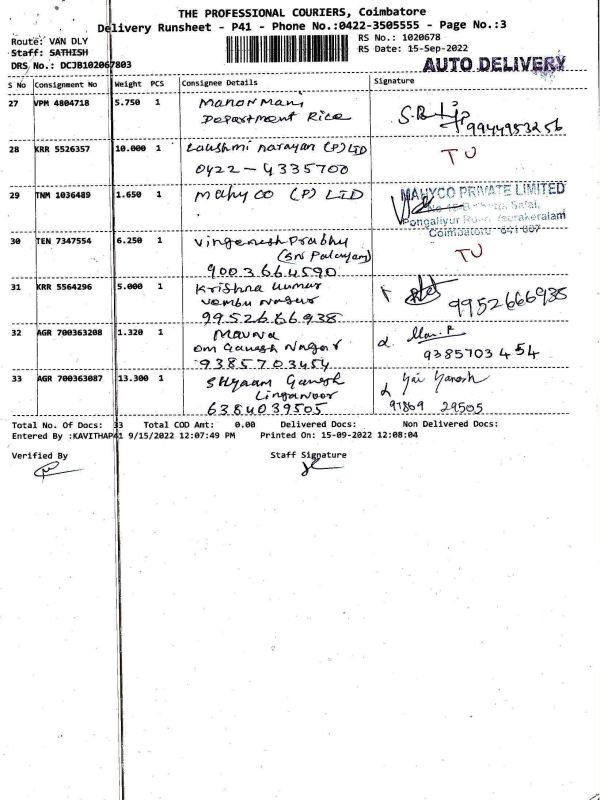 THE PROFESSIONAL COURIERS, Coimbatore
Delivery Runsheet - P41 - Phone No.:0422-3505555 - Page No.:3
Route: VAN DLY
RS No.: 1020678
Staff: SATHISH
RS Date: 15-Sep-2022
DRS No.: DCJB102067803
AUTO DELIVERY
S No Consignment No Weight PCS Consignee Details Signature
27 VPM 4804718 5.750 1 Manormani
Department Rice
9944953256
28 KRR 5526357 10.000 1 Laushmi narayan (P) LTD
0422 - 4335700
TU
29 TNM 1036489 1.650 1 Mahyco (P) LTD
MAHYCO PRIVATE LIMITED
Pongaliyur Road
Coimbatore - 641 007
30 TEN 7347554 6.250 1 Vingenesh Prabhu
(Sri Palayam)
9003664590
TU
31 KRR 5564296 5.000 1 Krishna Kumar
Vembu Nagar
9952666938
9952666938
32 AGR 700363208 1.320 1 Mauna
Om Ganesh Nagar
9385703454
9385703454
33 AGR 700363087 13.300 1 Shyaam Ganesh
Linganoor
6384039505
91869 29505
Total No. Of Docs: 33 Total COD Amt: 0.00 Delivered Docs: Non Delivered Docs:
Entered By :KAVITHAP41 9/15/2022 12:07:49 PM Printed On: 15-09-2022 12:08:04
Verified By Staff Signature